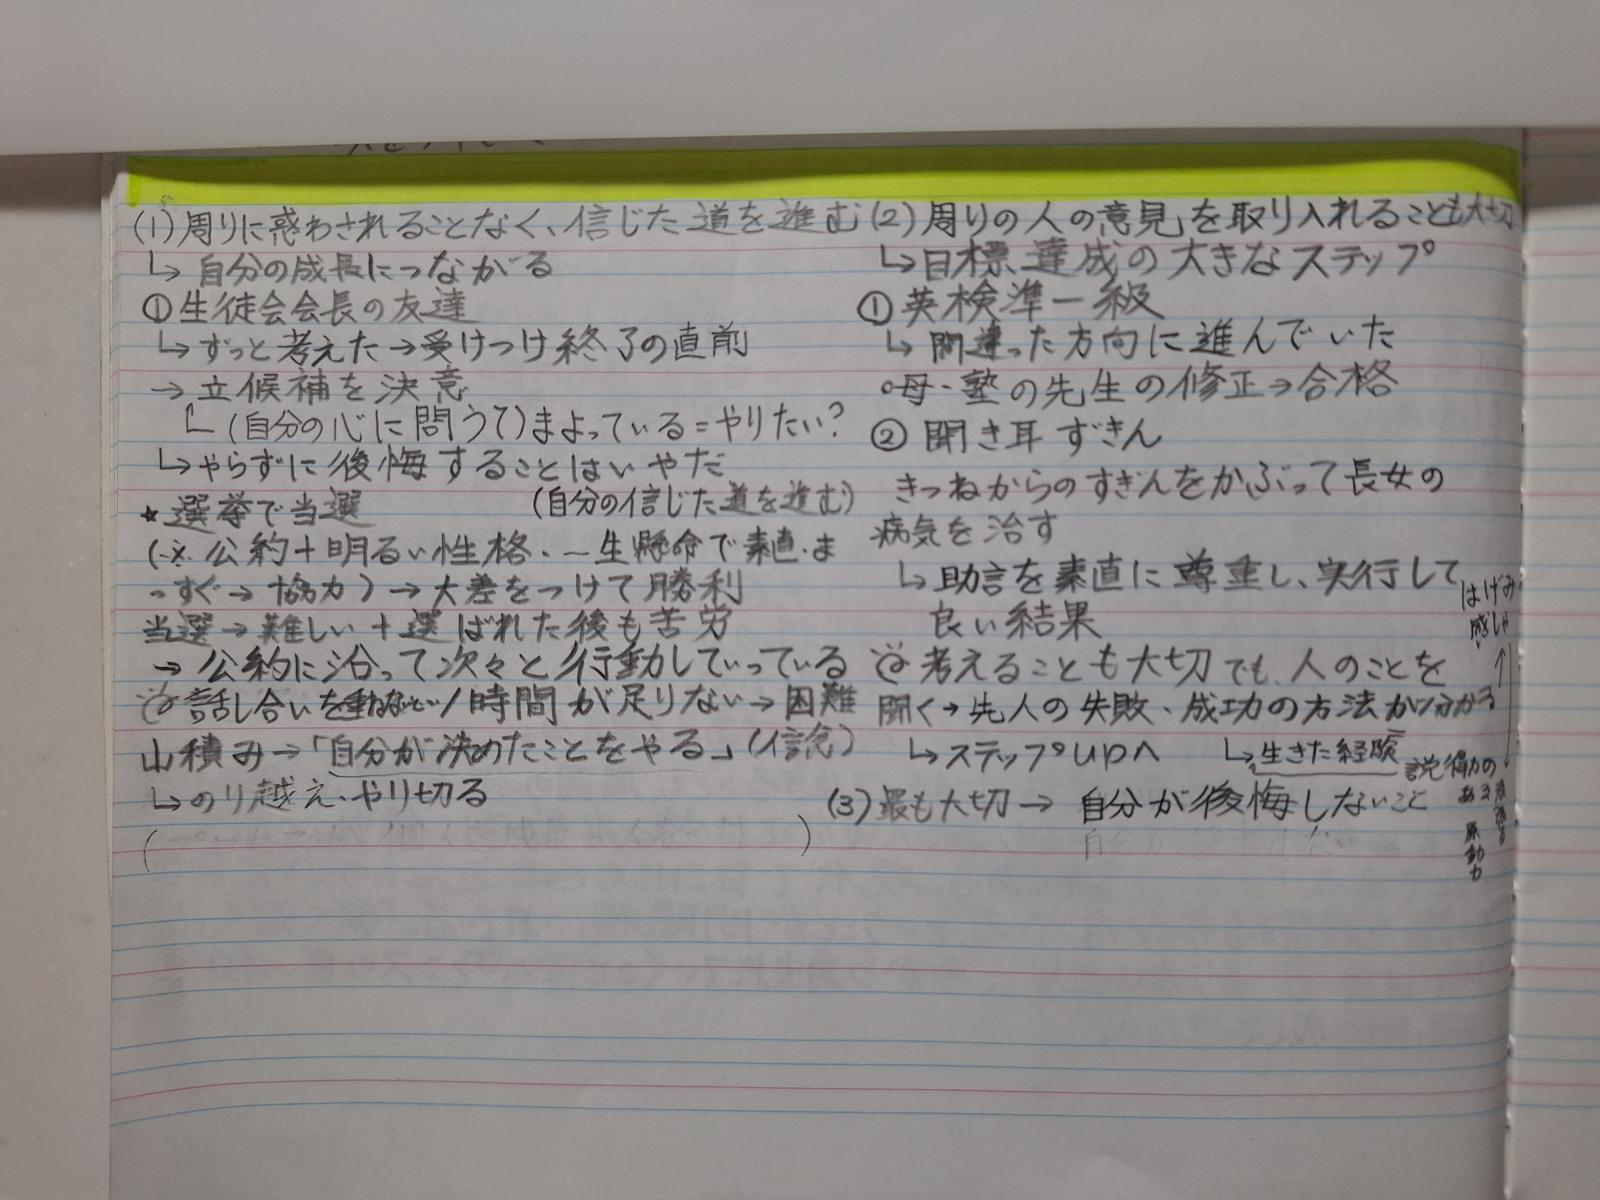 (1)周りに惑わされることなく、信じた道を進む
↳自分の成長につながる
①生徒会会長の友達
↳ずっと考えた→受けつけ終了の直前
→立候補を決意
(自分の心に問うて)まよっている=やりたい?
↳やらずに後悔することはいやだ
★選挙で当選
(自分の信じた道を進む)
(※公約+明るい性格・一生懸命で素直・ま
っすぐ→協力)→大差をつけて勝利
当選→難しい+選ばれた後も苦労
→公約に沿って次々と行動していっている
話し合いを重ねるなど…/時間が足りない→困難
山積み→「自分が決めたことをやる」(信念)
↳のり越え、やり切る
( )
(2)周りの人の意見」を取り入れることも大切
↳目標達成の大きなステップ
①英検準一級
↳間違った方向に進んでいた
○母・塾の先生の修正→合格
②聞き耳ずきん
きつねからのずきんをかぶって長女の
病気を治す
↳助言を素直に尊重し、実行して
良い結果
考えることも大切でも、人のことを
聞く→先人の失敗・成功の方法が分かる
↳ステップUPへ ↳生きた経験
説得力の
ある
原動力
はげみ
感しゃ
(3)最も大切→ 自分が後悔しないこと